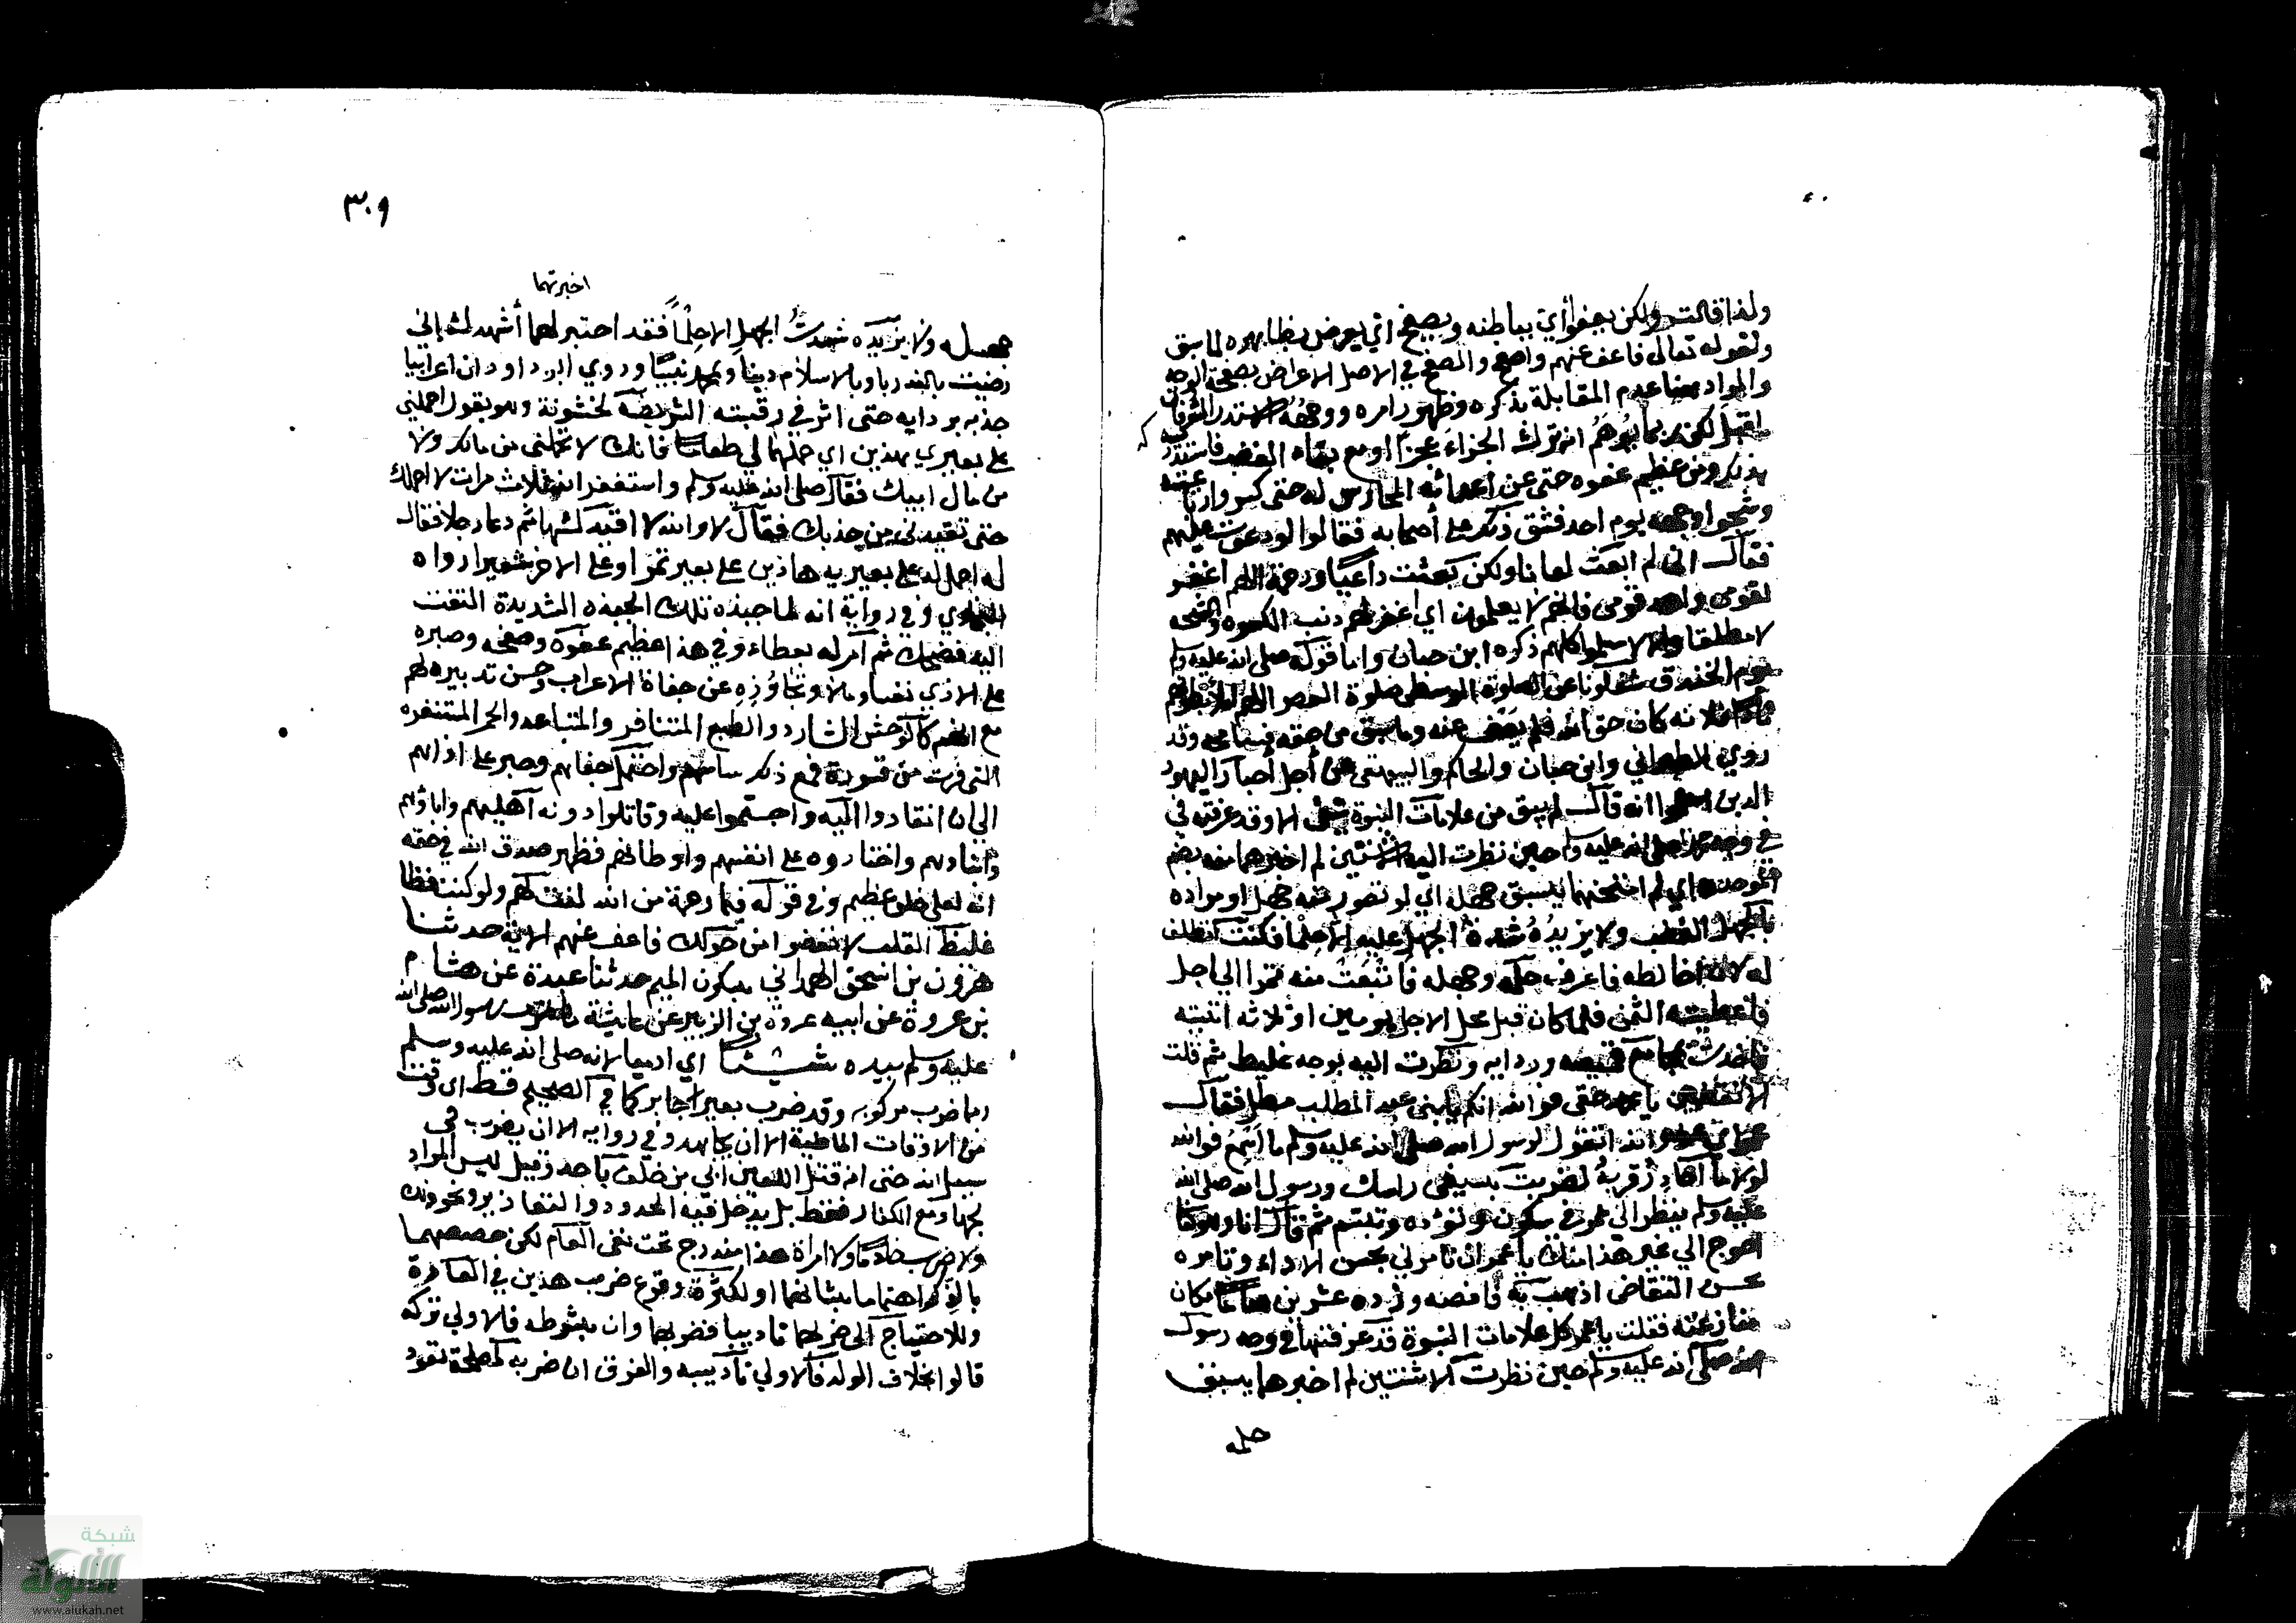 ولذا قالت ولكن يعفو أي بباطنه ويصفح أي يعرض بظاهره لما سبق
ولقوله تعالى فاعف عنهم واصفح والصفح في الاصل الاعراض بصفحة الوجه
والمراد هنا عدم المقابلة بذكره وظهور امره ووجه الاستدراك
لكن ربما يوهم انه ترك الجزاء عجزا او مع بقاء الغضب فاستدرك
بذلك ومن عظيم عفوه حتى عن اعدائه المحاربين له حتى كسروا رباعيته
وشجوا وجهه يوم احد فشق ذلك على أصحابه فقالوا لو دعوت عليهم
فقال اني لم ابعث لعانا ولكن بعثت داعيا ورحمة اللهم اغفر
لقومي واهد قومي فانهم لا يعلمون اي اغفر لهم ذنب الكسرة والشجة
لا مطلقا والا لاسلموا كلهم ذكره ابن حبان واما قوله صلى الله عليه وسلم
يوم الخندق شغلونا عن الصلوة الوسطى صلوة العصر اللهم املأ بطونهم
نارا فلانه كان حق الله فلم يعف عنه وما سبق من حقه فسامحه وقد
روى الطبراني وابن حبان والحاكم والبيهقي عن أجل أحبار اليهود
الذين اسلموا انه قال لم يبق من علامات النبوة شئ الا وقد عرفته في
في وجه محمد صلى الله عليه وسلم حين نظرت اليه الا اثنتين لم اخبرهما منه بضم
الموحدة اي لم امتحنهما يسبق حلمه جهله اي لو تصور منه جهل او مراده
بالجهل الغضب ولا يزيده شدة الجهل عليه الا حلما فكنت اتلطف
له لان اخالطه فاعرف حلمه وجهله فابتعت منه تمرا الى اجل
فاعطيته الثمن فلما كان قبل محل الاجل بيومين او ثلاثة اتيته
فاخذت بمجامع قميصه وردايه ونظرت اليه بوجه غليظ ثم قلت
الا تقضيني يا محمد حقي فوالله انكم يا بني عبد المطلب مطل فقال
عمر اي عدو الله اتقول لرسول الله صلى الله عليه وسلم ما أسمع فوالله
لولا ما احاذر قربه لضربت بسيفي راسك ورسول الله صلى الله
عليه وسلم ينظر الى عمر في سكون وتؤدة وتبسم ثم قال انا وهو كنا
احوج الى غير هذا منك يا عمر ان تامرني بحسن الاداء وتامره
بحسن التقاضي اذهب به فاقضه وزده عشرين صاعا مكان
ما رعته فقلت يا عمر كل علامات النبوة قد عرفتها في وجه رسول
الله صلى الله عليه وسلم حين نظرت الا اثنتين لم اخبرهما يسبق
حلمه
٣٠٩
اخبرتهما
جهله ولا يزيده شدة الجهل الا حلماً فقد اختبرتهما أشهدك اني
رضيت بالله ربا وبالاسلام دينا وبمحمد نبيا وروى ابو داود ان اعرابيا
جذبه بردايه حتى اثر في رقبته الشريفة لخشونته وهو يقول احملني
على بعيري هذين اي حملهما لي طعاما فانك لا تحملني من مالك ولا
من مال ابيك فقال صلى الله عليه وسلم واستغفر الله ثلاث مرات لا احملك
حتى تقيدني من جذبك فقال لا والله لا اقيدكها ثم دعا رجلا فقال
له احمل له على بعيريه هاذين على بعير تمرا وعلى الاخر شعيرا رواه
البخاري وفي رواية انه لما جبذه تلك الجبذة الشديدة التفت
اليه فضحك ثم أمر له بعطاء وفي هذا عظيم عفوه وصفحه وصبره
على الاذى نفسا ومالا وتجاوزه عن جفاة الاعراب وحسن تدبيره لهم
مع انهم كالوحش الشارد والطبع المتنافر والمتباعد والحمر المستنفرة
التي فرت من قسورة فمع ذلك ساسهم واحتمل جفاهم وصبر على اذاهم
الى ان انقادوا اليه واجتمعوا عليه وقاتلوا دونه أهليهم واباؤهم
وابناءهم واختاروه على انفسهم واوطانهم فظهر صدق الله في حقه
انه لعلى خلق عظيم وفي قوله فبما رحمة من الله لنت لهم ولو كنت فظا
غليظ القلب لانفضوا من حولك فاعف عنهم الاية حدثنا
هرون بن اسحق الهمداني بسكون الميم حدثنا عبدة عن هشام
بن عروة عن ابيه عروة بن الزبير عن عايشة ما ضرب رسول الله صلى الله
عليه وسلم بيده شيئا اي ادميا لانه صلى الله عليه وسلم
ربما ضرب مركوبه وقد ضرب بعير جابر كما في الصحيح قط اي وقت
من الاوقات الماضية الا ان يجاهد وفي رواية الا ان يضرب في
سبيل الله حتى انه قتل اللعين أبي من خلف باحد وقيل ليس المراد
بجهاد مع الكفار فقط بل يدخل فيه الحدود والتعاذير ونحو ذلك
ولا ضرب خادما ولا امراة هذا مندرج تحت نفي العام لكن خصصهما
بالذكر اهتماما بشانهما او لكثرة وقوع ضرب هذين في العادة
وللاحتياج الى ضربهما تاديبا فضربهما وان بشرطه فالاولى تركه
قالوا بخلاف الولد فالاولى تأديبه والفرق ان ضربه لمصلحة تعود
شبكة
الألوكة
www.alukah.net